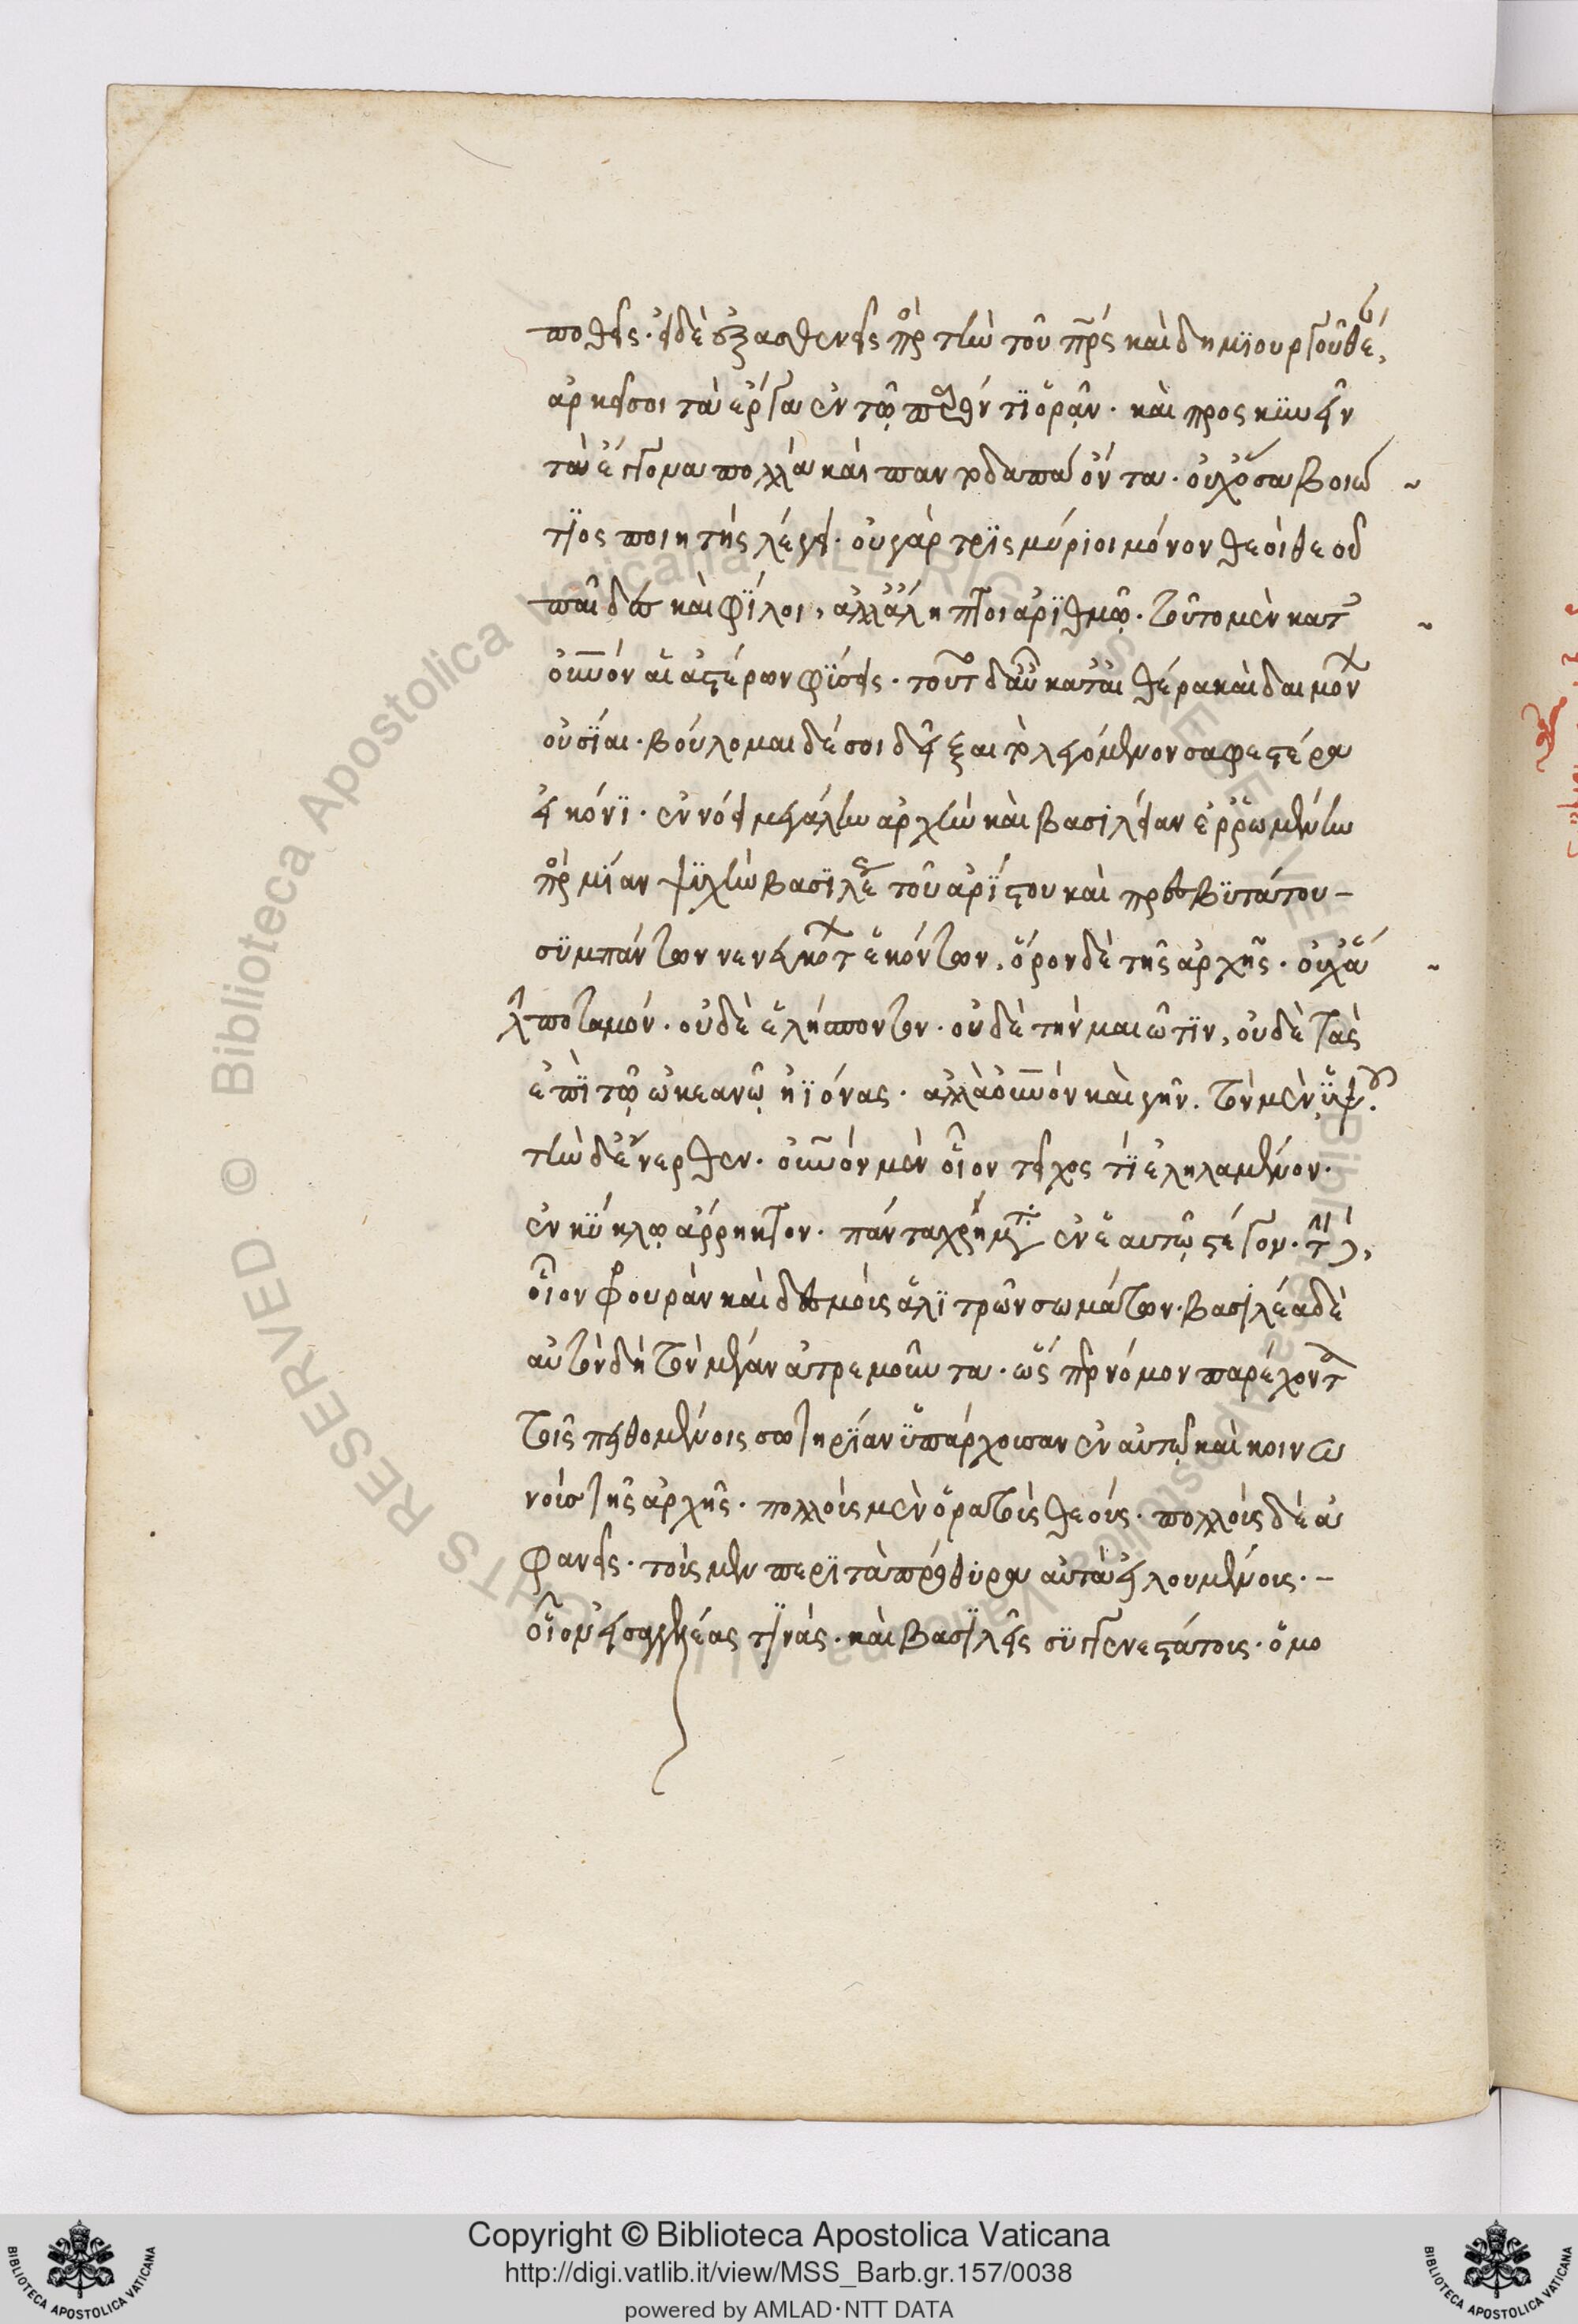 ποθεῖς. εἰ δὲ ἐξασθενεῖς πρὸς τὴν τοῦ πατρὸς καὶ δημϊουργοῦ θέαν,
ἀρκεῖ σοι τὰ ἔργα ἐν τῷ παρόντι ὁρᾷν. καὶ προσκυνεῖν
τὰ ἔγγονα πολλὰ καὶ παντοδαπὰ ὄντα. οὐχ ὅσα βοιώ
τϊος ποιητής λέγει. οὐ γὰρ τρϊς μύριοι μόνον θεοὶ θεοῦ
παῖδες καὶ φϊλοι, ἀλλ' ἄληπτοι ἀρϊθμῷ. τοῦτο μὲν κατ'
οὐνὸν αἱ ἀστέρων φύσεις. τοῦτο δ' αὖ κατ' αἰθέρα καὶ δαιμόνων
οὐσϊαι. βούλομαι δέ σοι δεῖξαι τὸ λεγόμενον σαφεστέρᾳ
εἰκόνϊ. ἐννόει μεγάλην ἀρχὴν καὶ βασιλείαν ἐρρωμένην
πρὸς μϊαν ψϋχὴν βασϊλέως τοῦ ἀρϊστου καὶ πρεσβϋτάτου
σϋμπάντων νενευκότων ἑκόντων, ὅρον δὲ τῆς ἀρχῆς. οὐχ ἅ
λϋν ποταμόν. οὐδὲ ἑλήσποντον. οὐδὲ τὴν μαιῶτϊν, οὐδὲ τὰς
ἐπὶ τῷ ὠκεανῷ ἠϊόνας. ἀλλὰ οὐνὸν καὶ γῆν. τὸν μὲν ὑψοῦ.
τὴν δ' ἔνερθεν. οὐνὸν μὲν οἷον τεῖχος τϊ ἐληλαμένον.
ἐν κύκλῳ ἄρρηκτον. πάντα χρήματα ἐν ἑαυτῷ στέγον. γῆν δὲ,
οἷον φρουρὰν καὶ δεσμοὺς ἀλϊτρῶν σωμάτων. βασιλέα δὲ
αὐτὸν δὴ τὸν μέγαν ἀτρεμοῦντα. ὥσπερ νόμον παρέχοντα
τοῖς πειθομένοις σωτηρϊαν ὑπάρχουσαν ἐν αὐτῷ καὶ κοινω
νοὺς τῆς ἀρχῆς. πολλοὺς μὲν ὁρατοὺς θεούς. πολλοὺς δὲ ἀ
φανεῖς. τοὺς μὲν περϊ τὰ πρόθϋρα αὐτὰ εἰλουμένους.
οἷον εἰσαγγελέας τϊνάς. καὶ βασϊλεῖς σϋγγενεστάτους. ὁμο
Copyright © Biblioteca Apostolica Vaticana
http://digi.vatlib.it/view/MSS_Barb.gr.157/0038
powered by AMLAD·NTT DATA